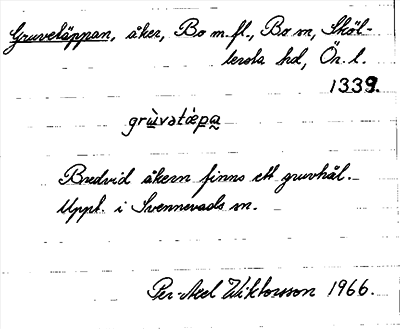 Gruvetäppan, åker, Bo m.fl., Bo sn, Sköl-
lersta hd, Ör. l.
1339.
grùvətǽpa
Bredvid åkern finns ett gruvhål.
Uppt. i Svennevads sn.
Per-Axel Wiktorsson 1966.